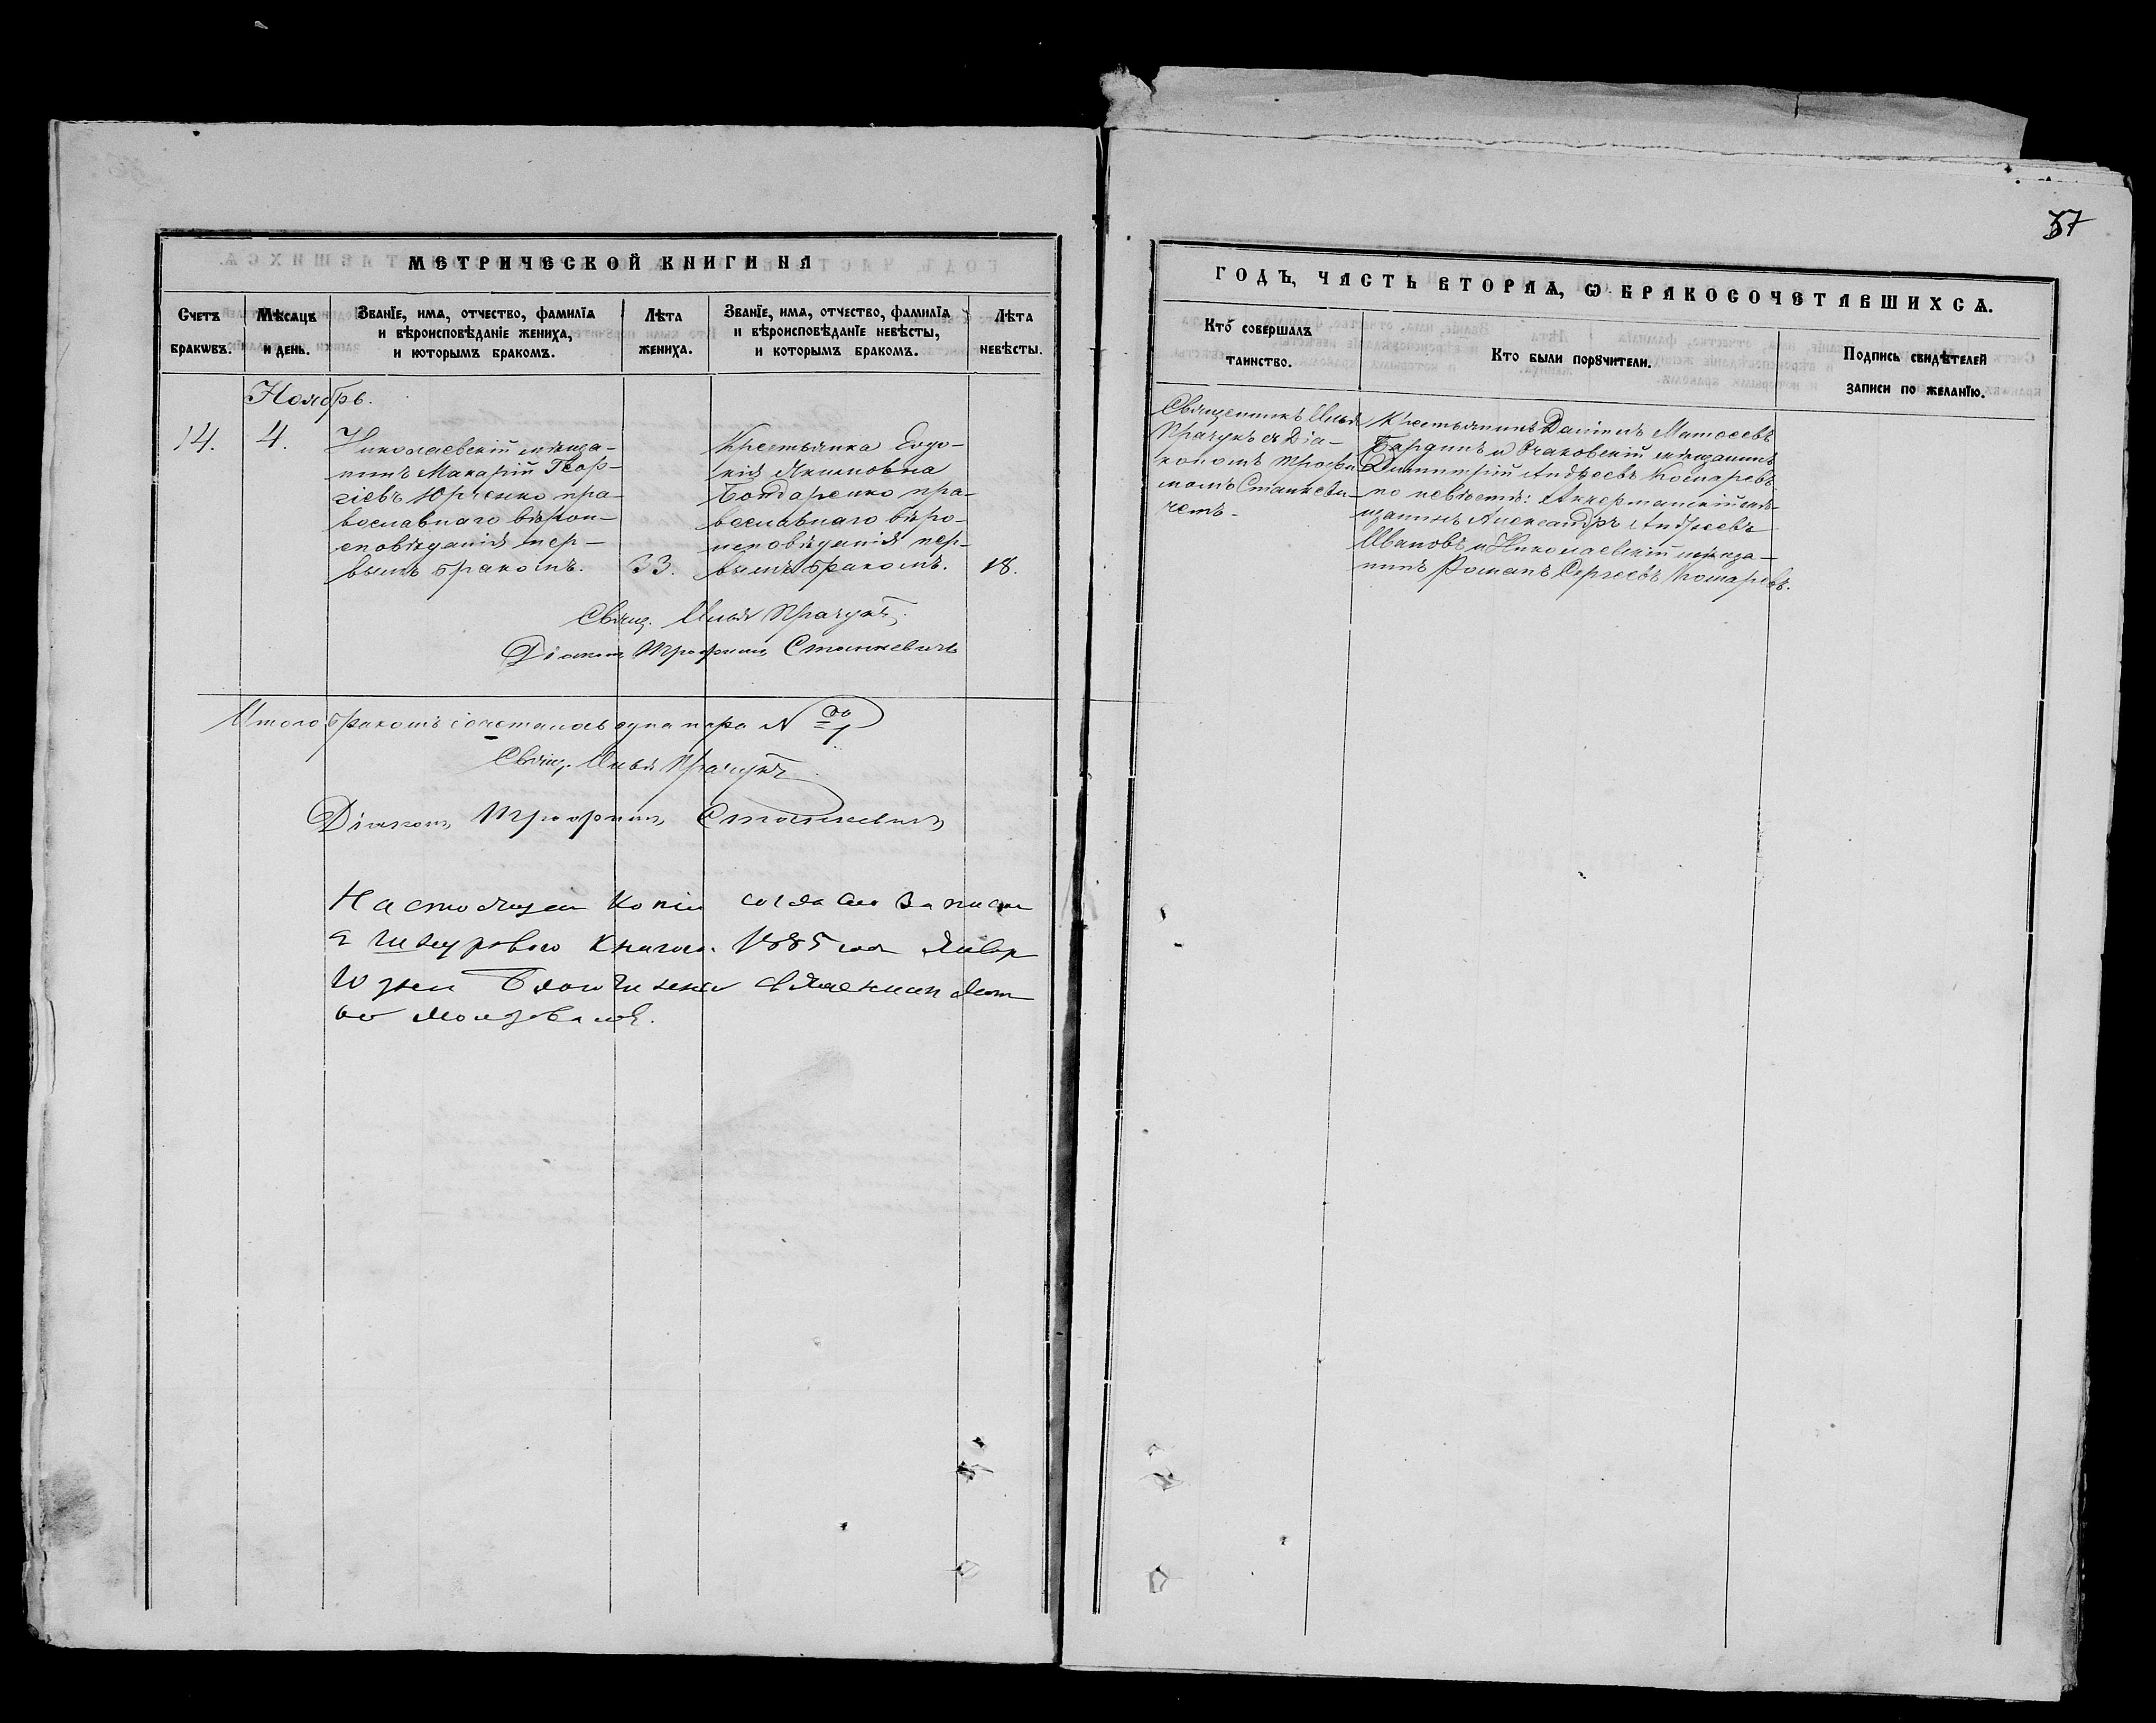 МЕТРИЧЕСКОЙ КНИГИ НА
Счетъ браковъ.
Мѣсяцъ и день.
Званіе, имя, отчество, фамилія
и вѣроисповѣданіе жениха,
и которымъ бракомъ.
Лѣта жениха.
Званіе, имя, отчество, фамилія
и вѣроисповѣданіе невѣсты,
и которымъ бракомъ.
Лѣта невѣсты.
Ноябрь.
14.
4.
Николаевскій мѣща-
нинъ Макарій Геор-
гіевъ Юрченко пра-
вославнаго вѣрои-
сповѣданія пер-
вымъ бракомъ.
33.
Крестьянка Евдо-
кія Якимовна
Бондаренко пра-
вославнаго вѣро-
исповѣданія пер-
вымъ бракомъ.
18.
Свящ. Илья Крачукъ.
Діаконъ Трофимъ Станкевичъ
Итого бракомъ сочеталась одна пара № 1
Свящ. Илья Крачукъ
Діаконъ Трофимъ Станкевичъ
Настоящая копія согласно записи
шнуровою книгою 1885 года Январ
10 дня Благочинный священник
37
ГОДЪ, ЧАСТЬ ВТОРАЯ, Ѡ БРАКОСОЧЕТАВШИХСЯ.
Кто совершалъ
таинство.
Кто были поручители.
Подпись свидѣтелей
записи по желанію.
Священникъ Илья
Крачукъ съ Діа-
кономъ Трофи-
момъ Станкеви-
чемъ.
Крестьянинъ Даніилъ Матѳеевъ
Бардинъ и Очаковскій мѣщанинъ
Димитрій Андреевъ Комаревъ
по невѣстѣ: Аккерманскій мѣ-
щанинъ Александръ Андреевъ
Ивановъ и Николаевскій мѣща-
нинъ Романъ Сергеевъ Комаревъ.